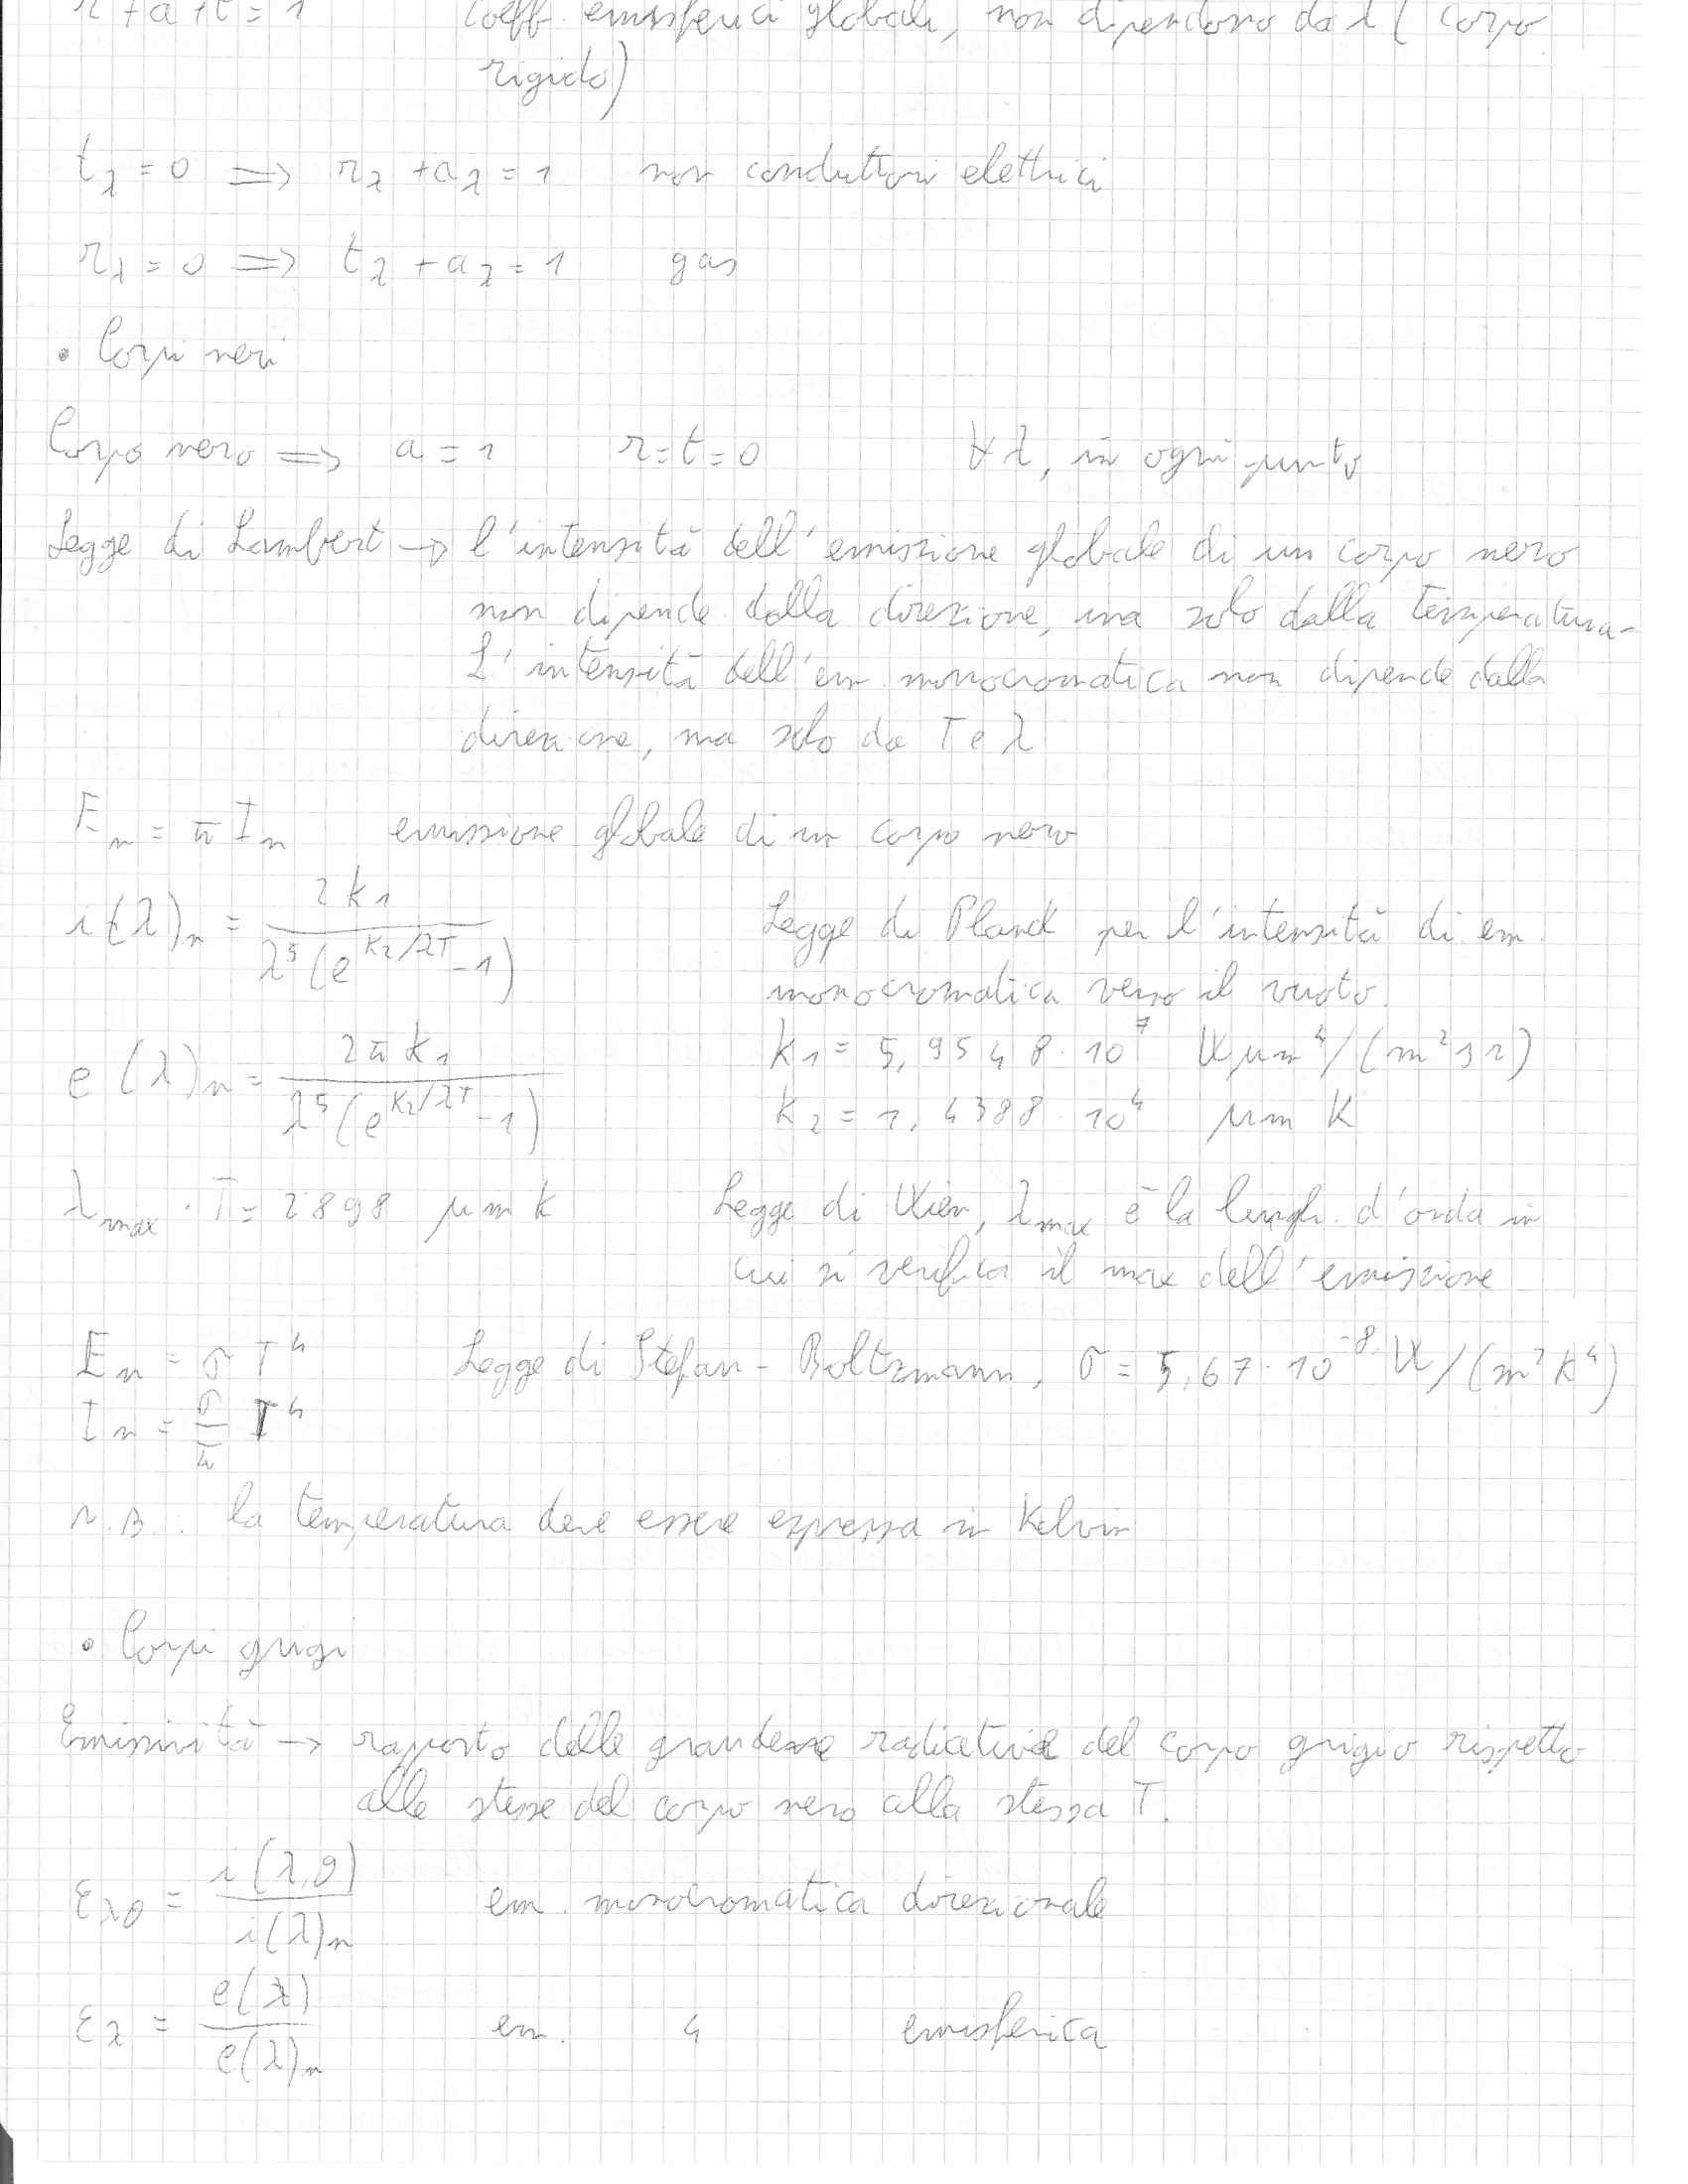 r + a + t = 1 coeff. emisferici globali, non dipendono da λ (corpo
rigido)
t_λ = 0 ⟹ r_λ + a_λ = 1 non conduttori elettrici
r_λ = 0 ⟹ t_λ + a_λ = 1 gas
• Corpi neri
Corpo nero ⟹ a = 1 r = t = 0 ∀ λ, in ogni punto
Legge di Lambert → l'intensità dell'emissione globale di un corpo nero
non dipende dalla direzione, ma solo dalla temperatura.
L'intensità dell'em. monocromatica non dipende dalla
direzione, ma solo da T e λ
E_n = π I_n emissione globale di un corpo nero
i(λ)_n = 2k_1 / λ^5 (e^{k_2/λT} - 1) Legge di Planck per l'intensità di em.
monocromatica verso il vuoto.
e(λ)_n = 2π k_1 / λ^5 (e^{k_2/λT} - 1) k_1 = 5,9548 · 10^7 W μm^4/(m^2 sr)
k_2 = 1,4388 · 10^4 μm K
λ_max · T = 2898 μm K Legge di Wien, λ_max è la lungh. d'onda in
cui si verifica il max dell'emissione
E_n = σ T^4 Legge di Stefan-Boltzmann, σ = 5,67 · 10^{-8} W/(m^2 K^4)
I_n = σ/π T^4
N.B.: la temperatura deve essere espressa in Kelvin
• Corpi grigi
Emissività → rapporto delle grandezze radiative del corpo grigio rispetto
alle stesse del corpo nero alla stessa T.
ε_λθ = i(λ,θ) / i(λ)_n em. monocromatica direzionale
ε_λ = e(λ) / e(λ)_n em. " emisferica